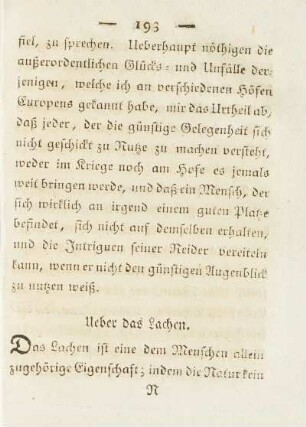 — 193 —
fiel, zu sprechen. Ueberhaupt nöthigen die
außerordentlichen Glücks- und Unfälle der-
jenigen, welche ich an verschiedenen Höfen
Europens gekannt habe, mir das Urtheil ab,
daß jeder, der die günstige Gelegenheit sich
nicht geschickt zu Nutze zu machen versteht,
weder im Kriege noch am Hofe es jemals
weit bringen werde, und daß ein Mensch, der
sich wirklich an irgend einem guten Platze
befindet, sich nicht auf demselben erhalten,
und die Intriguen seiner Neider vereiteln
kann, wenn er nicht den günstigen Augenblick
zu nutzen weiß.
Ueber das Lachen.
Das Lachen ist eine dem Menschen allein
zugehörige Eigenschaft; indem die Natur kein
N